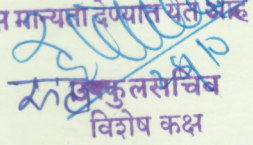 मान्यता देण्यात येत आहे
उपकुलसचिव
विशेष कक्ष